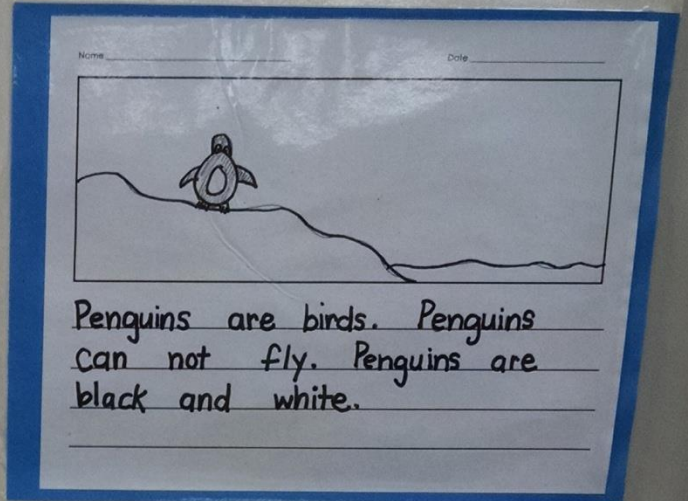 Name Date
Penguins are birds. Penguins
can not fly. Penguins are
black and white.